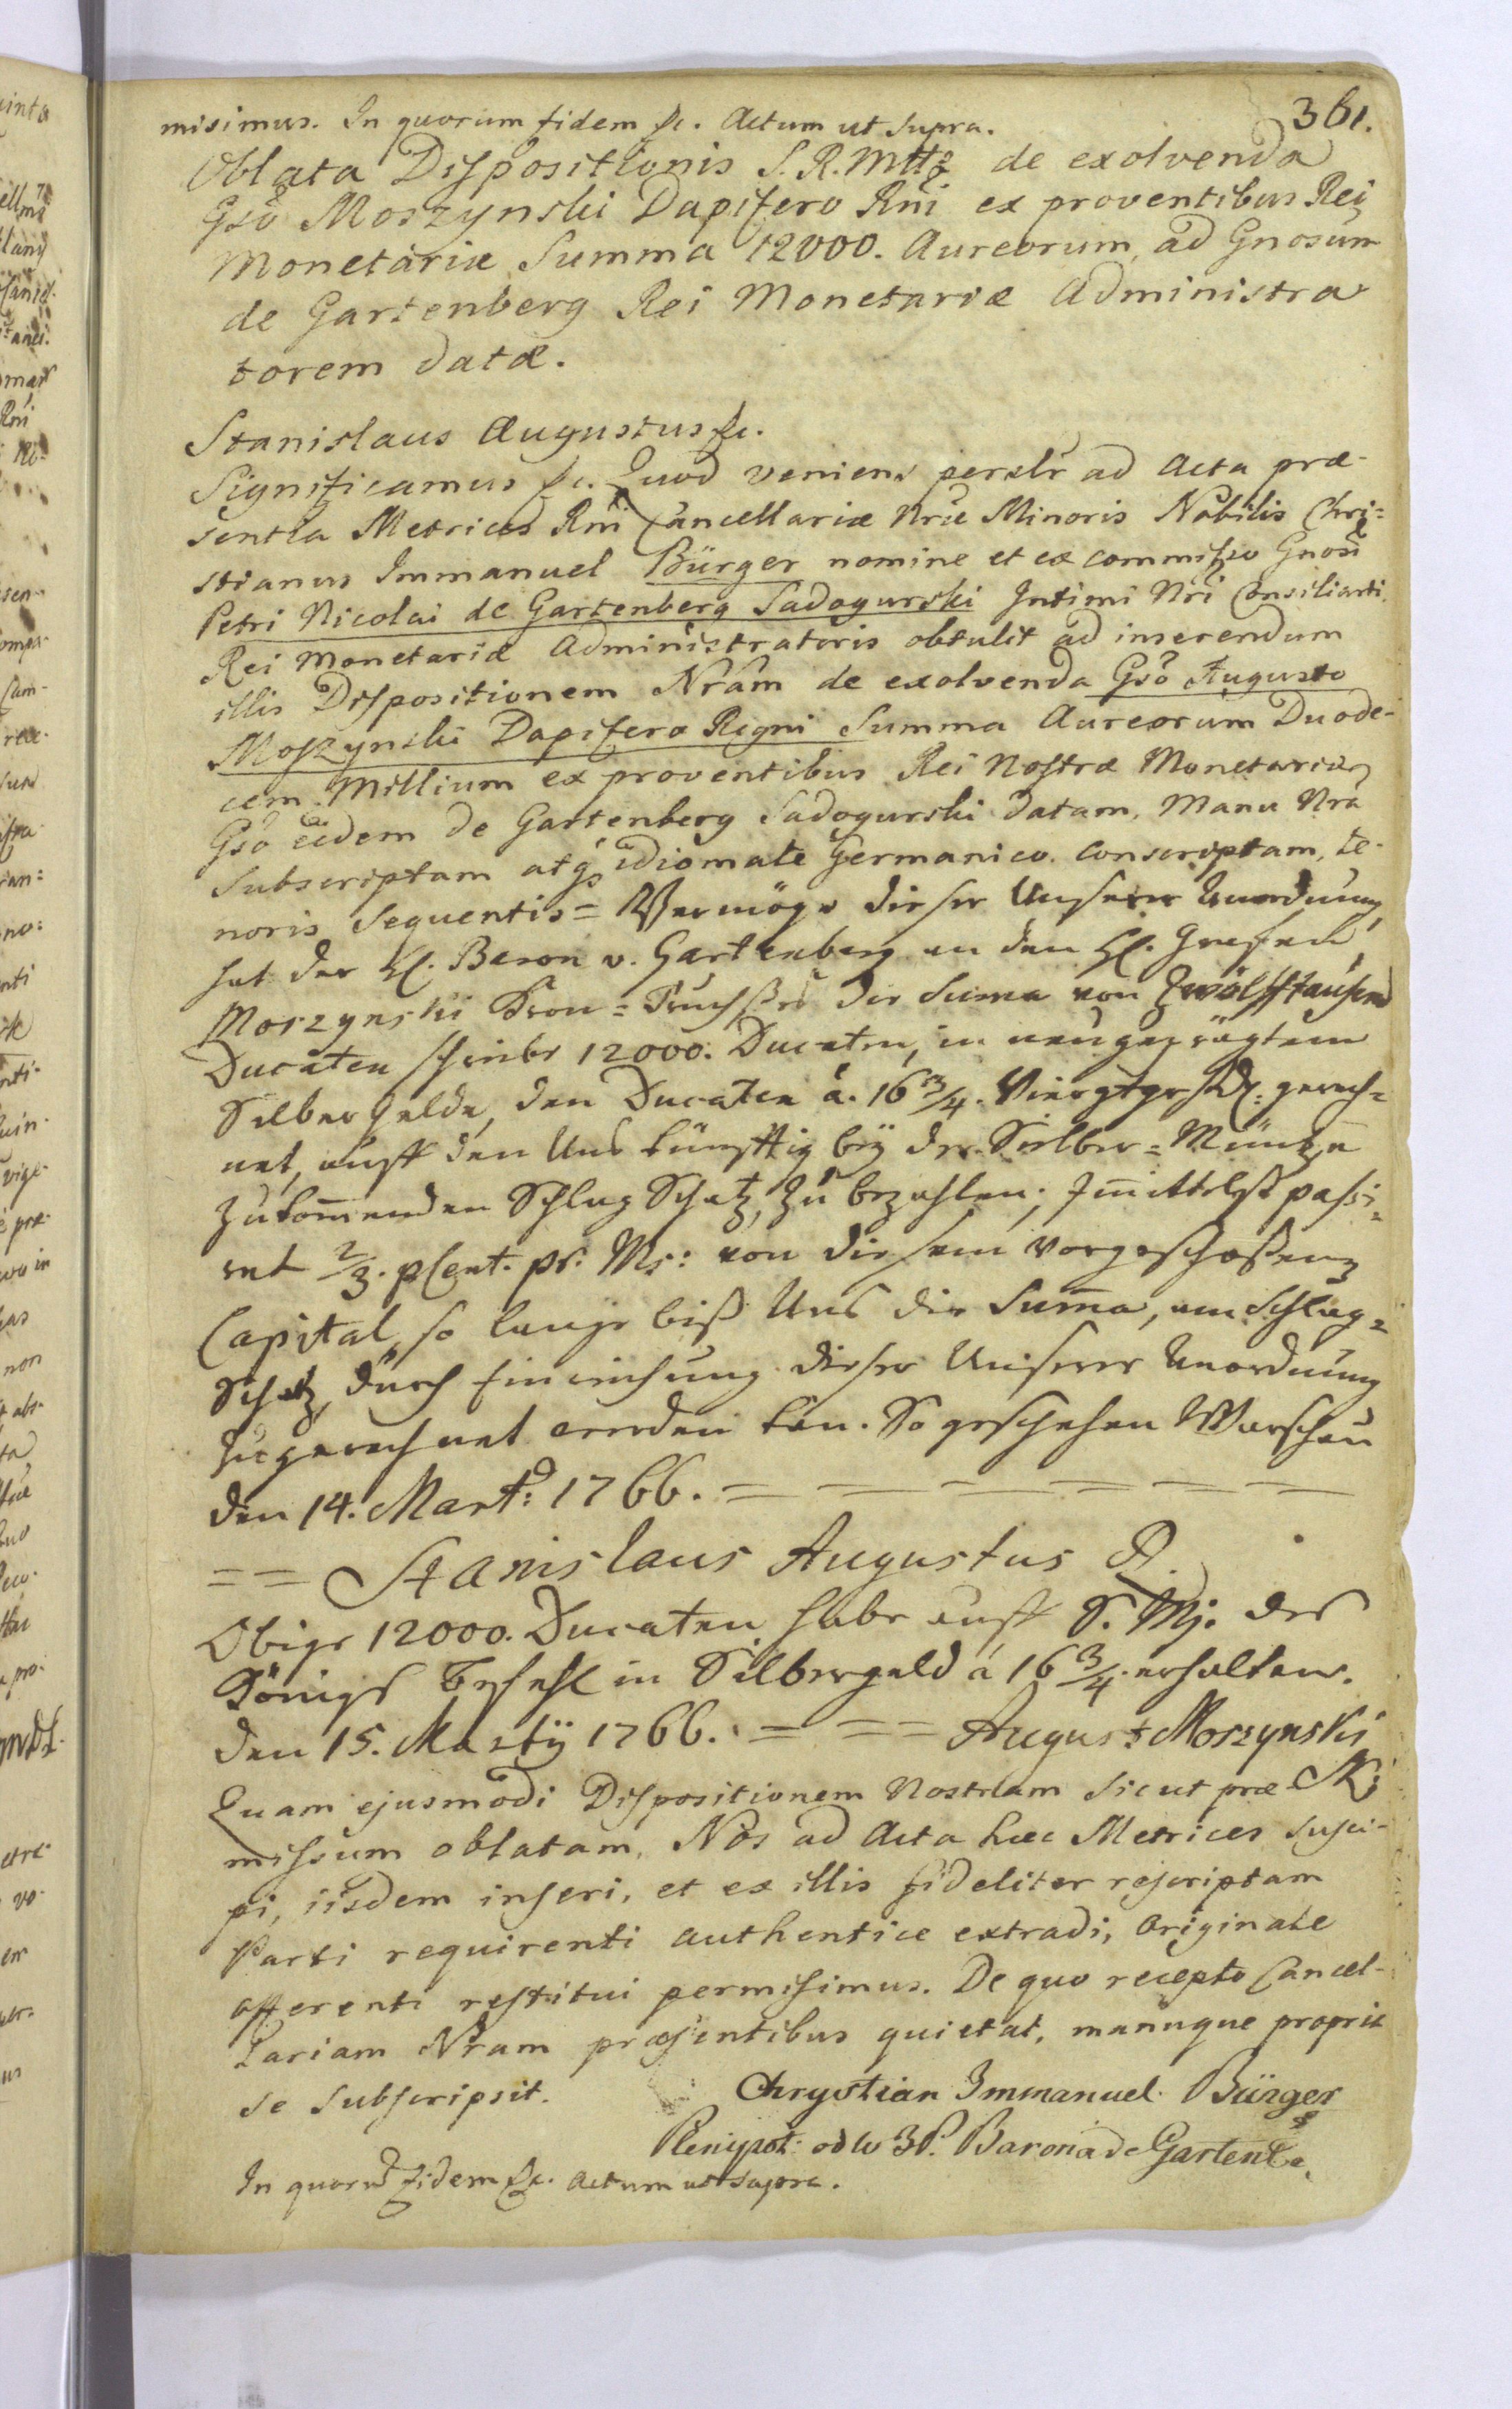 361.
misimus. In quorum fidem &c. Actum ut supra.
Oblata Dispositionis S. R. Mttis de exolvenda
Gso Moszynski Dapifero Rni ex proventibus Rei
Monetariæ Summa 12000. Aureorum, ad Gnosum
de Gartenberg Rei Monetariæ Administra
torem datæ.
Stanislaus Augustus &c.
Significamus &c. Quod veniens persłr ad Acta præ-
sentia Metrices Rni Cancellariæ Nræ Minoris Nobilis Chri=
stianus Immanuel Bürger nomine et ex commisso Gnosi
Petri Nicolai de Gartenberg Sadogurski Intimi Nri Consiliarii
Rei Monetariæ Administratoris obtulit ad inserendum
illis Dispositionem Nram de exolvenda Gso Augusto
Moszynski Dapifero Regni Summa Aureorum Duode-
cem Millium ex proventibus Rei Nostræ Monetariæ
Gso eidem de Gartenberg Sadogurski datam, Manu Nra
Subscriptam atqs idiomate Germanico conscriptam, te-
noris sequentis = Vermöge dieser Unserer Anordnung
hat der H. Baron v. Gartenberg an den H. Grafen
Moszynski Cron=Truchses die Suma von Zwölfftausend
Ducaten schreibe 12000. Ducaten, in neugeprägtem
Silber Gelde, den Ducaten á. 16 3/4. Viergtgrstk: gerech=
net, auff den Uns künfftig bey der Silber=Müntze
zukommenden Schlag Schatz, zu bezahlen; Imittelst passi=
ret 2/3. pCent. pr. Ms: von diesem vorgeschossenen
Capital, so lange biß Uns die Suma, am Schlag=
Schatz, durch Einreichung dieser Unserer Anordnung
zugerechnet werden kan. So geschehen Warschau
den 14. Mart: 1766. = = = = = =
== Stanislaus Augustus R.
Obige 12000. Ducaten habe auff S. Mj. des
Königs Befehl in Silbergeld á 16 3/4 erhalten.
den 15. Martÿ 1766. = == August Moszynski
Quam ejusmodi Dispositionem Nostram sicut præ
missum oblatam, Nos ad Acta hæc Metrices susci-
pi, iisdem inseri, et ex illis fideliter rescriptam
Parti requirenti authentice extradi, Originale
afferenti restitui permisimus. De quo recepto Cancel-
lariam Nram præsentibus quietat, manuque propria
se subscripsit. Chrystian Immanuel Bürger
Plenipot: od W JP. Barona de Gartenb.
In quorū fidem &c. Actum ut supra.